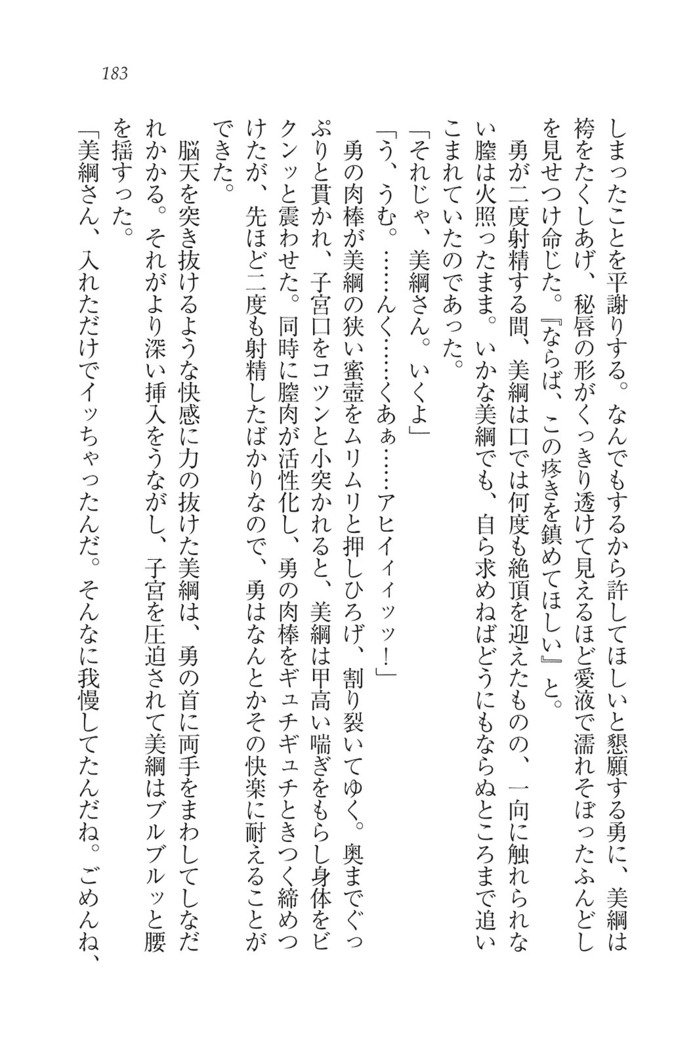 183
しまったことを平謝りする。なんでもするから許してほしいと懇願する勇に、美綱は
袴をたくしあげ、秘唇の形がくっきり透けて見えるほど愛液で濡れそぼったふんどし
を見せつけ命じた。『ならば、この疼きを鎮めてほしい』と。
勇が二度射精する間、美綱は口では何度も絶頂を迎えたものの、一向に触れられな
い膣は火照ったまま。いかな美綱でも、自ら求めねばどうにもならぬところまで追い
こまれていたのであった。
「それじゃ、美綱さん。いくよ」
「う、うむ。……んく……くあぁ……アヒイィィッッ！」
勇の肉棒が美綱の狭い蜜壺をムリムリと押しひろげ、割り裂いてゆく。奥までぐっ
ぷりと貫かれ、子宮口をコツンと小突かれると、美綱は甲高い喘ぎをもらし身体をビ
クンッと震わせた。同時に膣肉が活性化し、勇の肉棒をギュチギュチときつく締めつ
けたが、先ほど二度も射精したばかりなので、勇はなんとかその快楽に耐えることが
できた。
脳天を突き抜けるような快感に力の抜けた美綱は、勇の首に両手をまわしてしなだ
れかかる。それがより深い挿入をうながし、子宮を圧迫されて美綱はブルブルッと腰
を揺すった。
「美綱さん、入れただけでイッちゃったんだ。そんなに我慢してたんだね。ごめんね、